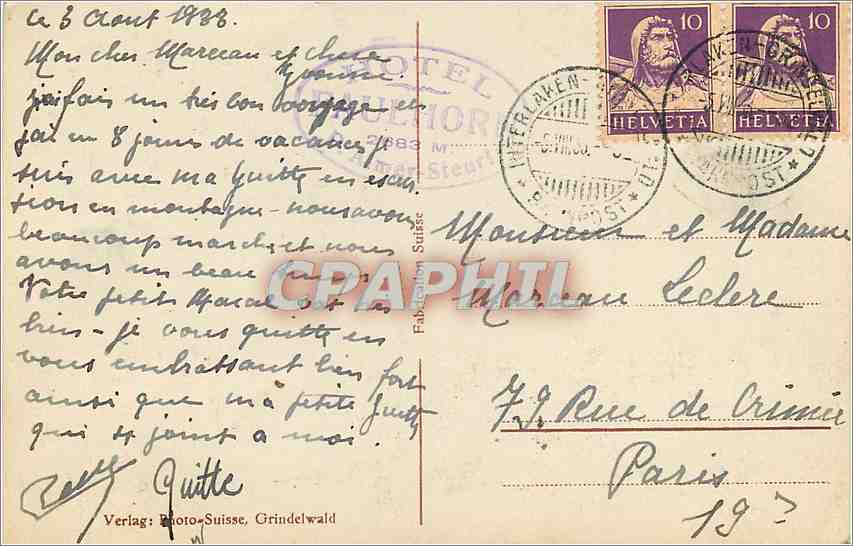 Le 3 Aout 1933
Mon cher Marceau et chère
Yvonne
j'ai fais un très bon voyage et
j'ai eu 8 jours de vacances je
suis avec ma Guitte en excur
sion en montagne - nous avons
beaucoup marché et nous
avons un beau temps
Votre petit Marcel est très
bien - je vous quitte en
vous embrassant bien fort
ainsi que ma petite Guitte
qui se joint a moi.
Guitte
Verlag: Photo-Suisse, Grindelwald
HOTEL
FAULHORN
2683 M
Fabrication Suisse
CPAPHIL
10
HELVETIA
10
HELVETIA
INTERLAKEN
BAHNPOST
INTERLAKEN-GRINDEL
Monsieur et Madame
Marceau Leclere
79 Rue de Crimée
Paris
19e